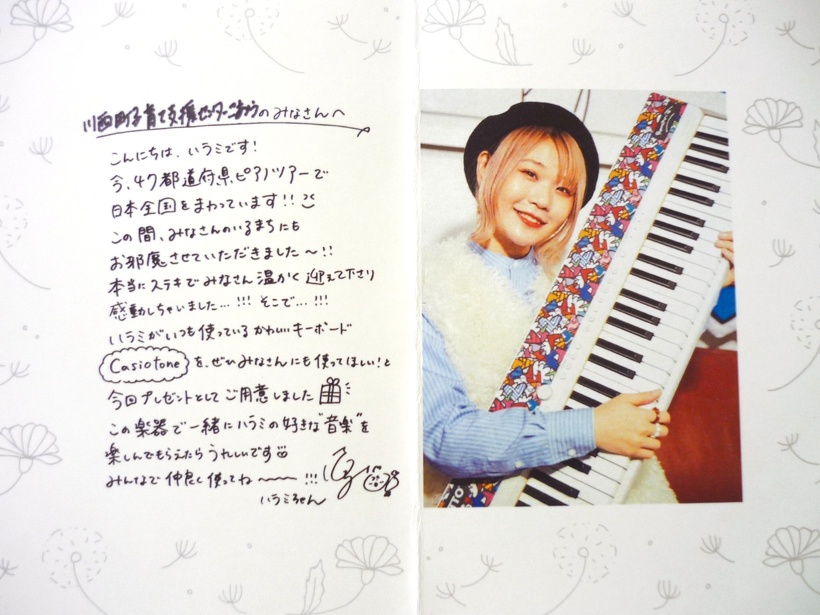 川西町子育て支援センターごまつのみなさんへ
こんにちは、ハラミです!
今、47都道府県ピアノツアーで
日本全国をまわっています!!
この間、みなさんのいるまちにも
お邪魔させていただきました〜!!
本当にステキでみなさん温かく迎えて下さり
感動しちゃいました…!!! そこで…!!!
ハラミがいつも使っているかわいいキーボード
Casiotoneを、ぜひみなさんにも使ってほしい!と
今回プレゼントとしてご用意しました
この楽器で一緒にハラミの好きな"音楽"を
楽しんでもらえたらうれしいです
みんなで仲良く使ってね〜〜〜!!!
ハラミちゃん